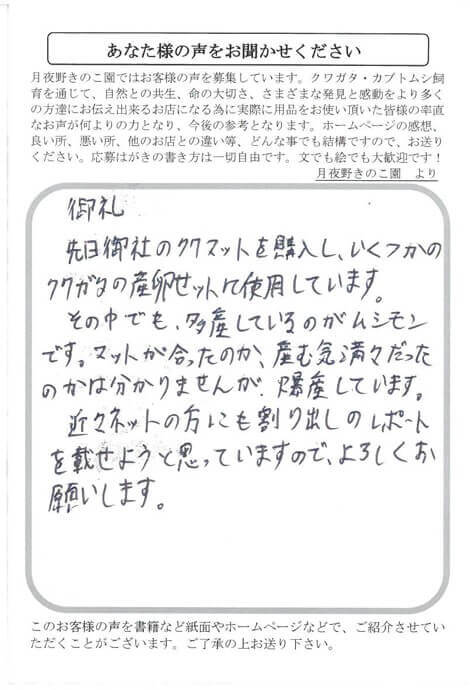 あなた様の声をお聞かせください
月夜野きのこ園ではお客様の声を募集しています。クワガタ・カブトムシ飼
育を通じて、自然との共生、命の大切さ、さまざまな発見と感動をより多く
の方達にお伝え出来るお店になる為に実際に用品をお使い頂いた皆様の率直
なお声が何よりの力となり、今後の参考となります。ホームページの感想、
良い所、悪い所、他のお店との違い等、どんな事でも結構ですので、お送り
ください。応募はがきの書き方は一切自由です。文でも絵でも大歓迎です！
月夜野きのこ園　より
御礼
先日御社のクワマットを購入し、いくつかの
クワガタの産卵セットに使用しています。
その中でも、多産しているのがムシモン
です。マットが合ったのか、産む気満々だった
のかは分かりませんが、爆産しています。
近々ネットの方にも割り出しのレポート
を載せようと思っていますので、よろしくお
願いします。
このお客様の声を書籍など紙面やホームページなどで、ご紹介させてい
ただくことがございます。ご了承の上お送り下さい。